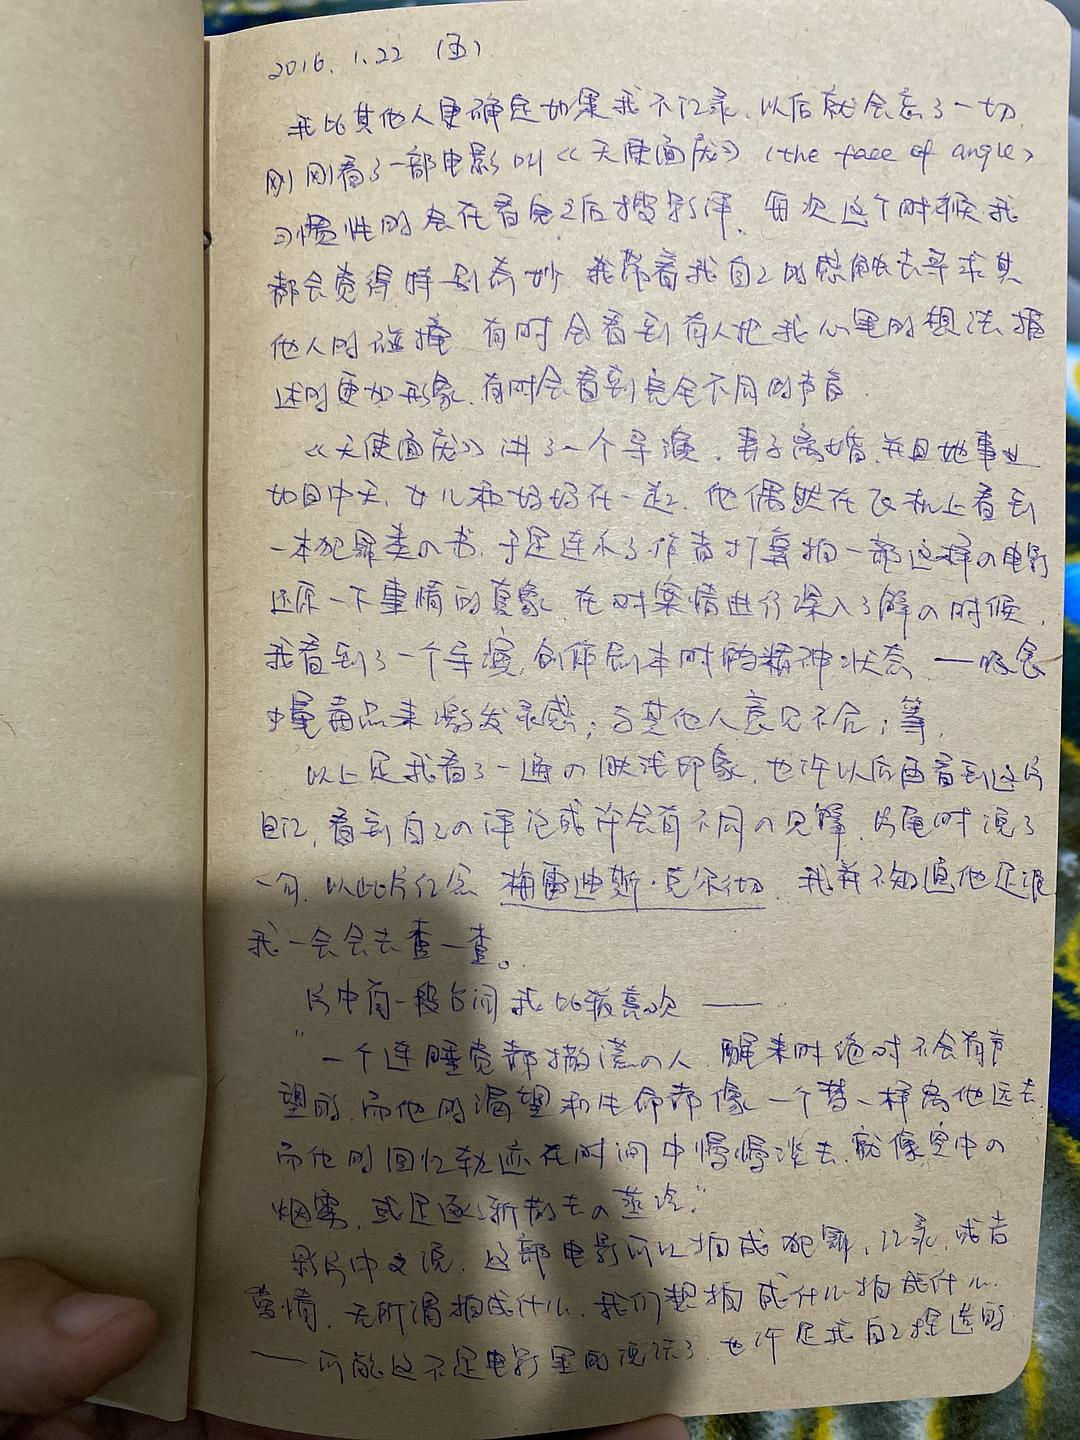 2016.1.22 (五)
我比其他人更确定如果我不记录,以后就会忘了一切.
刚刚看了一部电影叫《天使面庞》(the face of angle)
习惯性的会在看完之后搜影评,每次这个时候我
都会觉得特别奇妙 我带着我自己的感触去寻求其
他人的碰撞 有时会看到有人把我心里的想法描
述的更加形象.有时会看到完全不同的声音
《天使面庞》讲了一个导演,妻子离婚,并且她事业
如日中天,女儿和妈妈在一起.他偶然在飞机上看到
一本犯罪类の书,于是连系了作者打算拍一部这样の电影
还原一下事情的真象.在对案情进行深入了解の时候,
我看到了一个导演,创作剧本时的精神状态 ——吸食
少量毒品来激发灵感;与其他人意见不合;等.
以上是我看了一遍の肤浅印象,也许以后再看到这片
日记,看到自己の评论或许会有不同の见解.片尾时说了
一句,以此片纪念 梅雷迪斯·克尔彻.我并不知道他是谁
我一会会去查一查。
片中有一段台词我比较喜欢 ——
"一个连睡觉都撒谎の人 醒来时绝对不会有声
望的,而他的渴望和生命都像一个梦一样离他远去.
而他的回忆轨迹在时间中慢慢淡去.就像空中の
烟雾,或是逐渐散去の蒸汽."
影片中又说,这部电影可以拍成犯罪,记录,或者
爱情,无所谓拍成什么.我们想拍成什么拍成什么.
——可能这不是电影里的说法了 也许是我自己捏造的